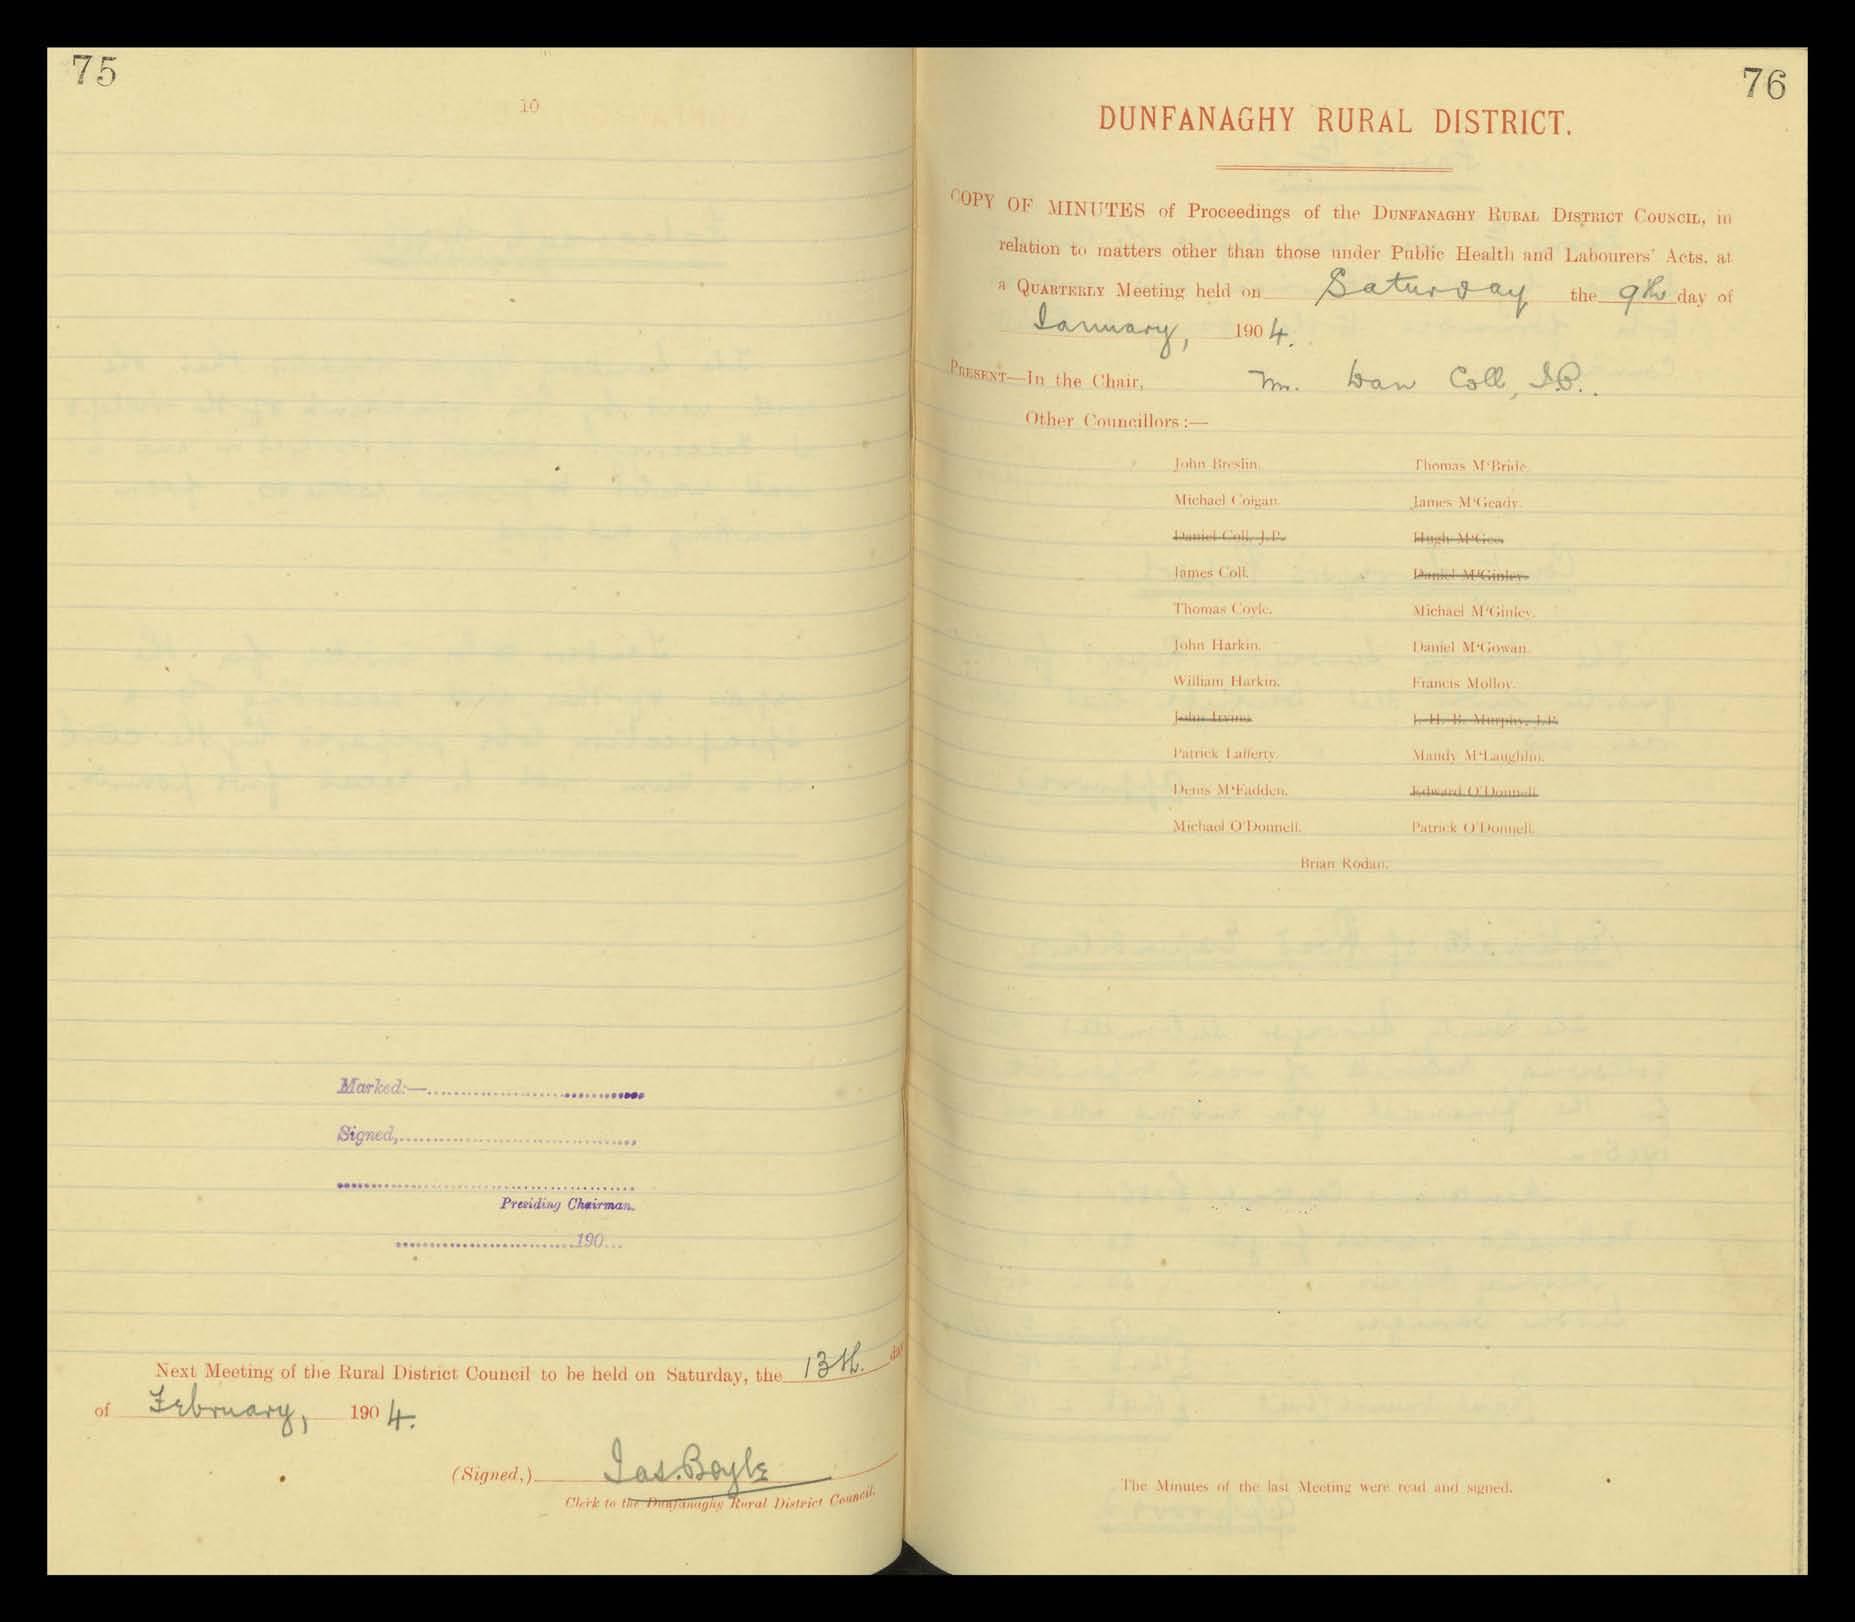 75
10
Marked:—
Signed,
Presiding Chairman.
190
Next Meeting of the Rural District Council to be held on Saturday, the 13th. day
of February, 1904.
(Signed,) Jas. Boyle
Clerk to the Dunfanaghy Rural District Council.
76
DUNFANAGHY RURAL DISTRICT.
COPY OF MINUTES of Proceedings of the DUNFANAGHY RURAL DISTRICT COUNCIL, in
relation to matters other than those under Public Health and Labourers' Acts, at
a QUARTERLY Meeting held on Saturday the 9th day of
January, 1904.
PRESENT—In the Chair, Mr. Dan Coll, J.P.
Other Councillors:—
John Breslin. Thomas M'Bride.
Michael Colgan. James M'Geady.
Daniel Coll, J.P. Hugh M'Gee.
James Coll. Daniel M'Ginley.
Thomas Coyle. Michael M'Ginley.
John Harkin. Daniel M'Gowan.
William Harkin. Francis Molloy.
John Irvine J. H. B. Murphy, J.P.
Patrick Lafferty. Mandy M'Laughlin.
Denis M'Fadden. Edward O'Donnell
Michael O'Donnell. Patrick O'Donnell.
Brian Rodan.
The Minutes of the last Meeting were read and signed.